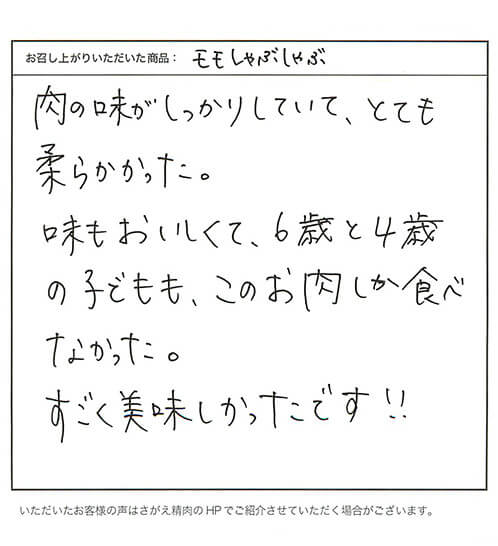 お召し上がりいただいた商品： モモしゃぶしゃぶ
肉の味がしっかりしていて、とても
柔らかかった。
味もおいしくて、6歳と4歳
の子どもも、このお肉しか食べ
なかった。
すごく美味しかったです!!
いただいたお客様の声はさがえ精肉のHPでご紹介させていただく場合がございます。